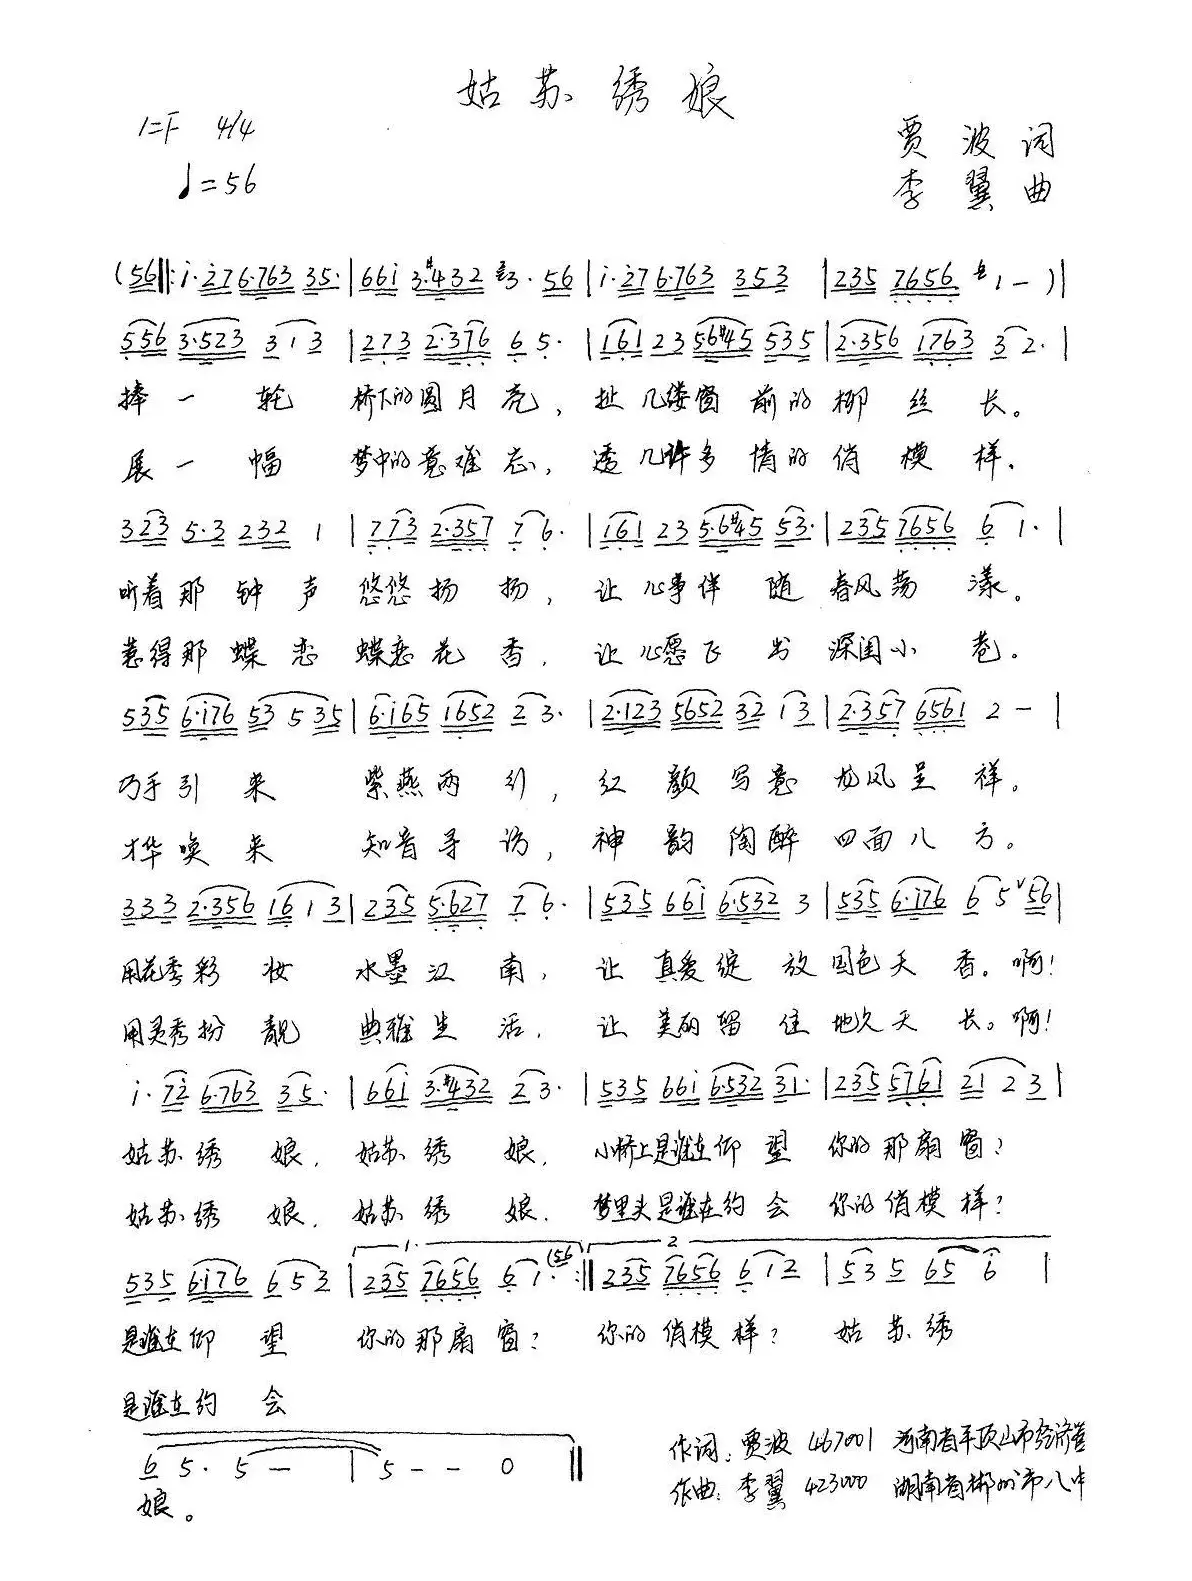 姑苏绣娘
1=F 4/4
贾波词
♩=56
李翼曲
(56‖:i·276·763 35·|66i 3·#432 3·56|i·276·763 353|235 7656 1-)|
556 3·523 313|273 2·376 65·|161 23 5·6#45 535|2·356 1763 32·|
捧一轮 桥下的圆月亮，扯几缕窗前的柳丝长。
展一幅 梦中的意难忘，透几许多情的俏模样．
323 5·3 232 1|773 2·357 76·|161 23 5·6#45 53·|235 7656 61·|
听着那钟声悠悠扬扬，让心事伴随春风荡漾。
惹得那蝶恋蝶恋花香．让心愿飞出深闺小巷。
535 6·i76 53 535|6·i65 1652 23·|2·123 5652 32 13|2·357 6561 2-|
巧手引来 紫燕两行，红颜写意龙风呈祥。
才华唤来 知音寻访，神韵陶醉四面八方。
333 2·356 16 13|235 5·627 76·|535 66i 6·532 3|535 6·i76 65∨56|
用花秀彩妆 水墨江南．让真爱绽放国色天香。啊！
用灵秀扮靓 典雅生活．让美丽留住地久天长。啊！
i·72 6·763 35·|66i 3·#432 23·|535 66i 6·532 31·|235 5761 21 23|
姑苏绣娘．姑苏绣娘．小桥上是谁在仰望 你的那扇窗？
姑苏绣娘．姑苏绣娘．梦里头是谁在约会 你的俏模样？
1. 2
535 6i76 653|235 7656 61·(56:‖235 7656 612|535 65 6|
是谁在仰望 你的那扇窗？ 你的俏模样？ 姑苏绣
是谁在约会
65·5-|5--0‖
娘。
作词：贾波 467001 河南省平顶山市经济
作曲：李翼 423000 湖南省郴州市八中